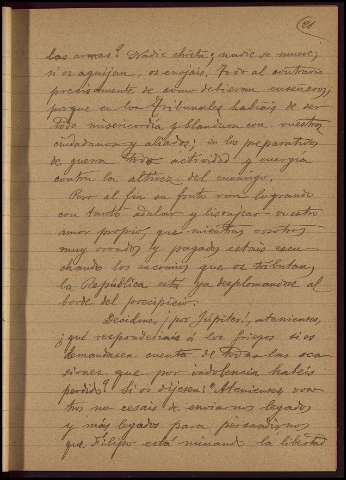 21
las armas? Nadie chista, nadie se mueve;
si os aguijan, os enojais, todo al contrario
precisamente de como debieran enseñaros,
porque en los Tribunales habiais de ser
todo misericordia y blandura con vuestros
ciudadanos y aliados; en los preparativos
de guerra todo actividad y energía
contra la altivez del enemigo.
Pero al fin su fruto van logrando
con tanto adular y lisonjear vuestro
amor propio, que mientras vosotros
muy orondos y pagados estais escu-
chando los encomios que os tributan,
la República está ya desplomandose al
borde del precipicio.
Decidme, ¡por Júpiter!, atenienses,
¿qué responderiais á los griegos si os
demandasen cuenta de todas las oca-
siones que por indolencia habeis
perdido? Si os dijesen: "Atenienses voso-
tros no cesais de enviarnos legados
y más legados para persuadirnos
que Filipo está minando la libertad